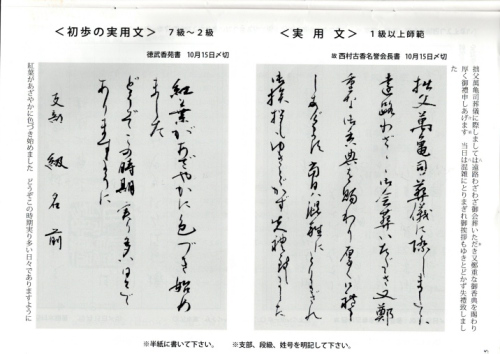 ＜実用文＞ 1級以上師範
故 西村古香名誉会長書 10月15日〆切
拙父萬亀司葬儀に際しましては遠路わざわざ御会葬いただき又鄭重な御香典を賜わり
厚く御禮申しあげます 当日は混雑にとりまぎれ御挨拶もゆきとどかず失禮致しまし
た
拙父萬亀司葬儀に際しましては
遠路わざわざ御会葬いただき又鄭
重な御香典を賜わり厚く御禮申
しあげます 当日は混雑にとりまぎれ
御挨拶もゆきとどかず失禮致しました
※支部、段級、姓号を明記して下さい。
＜初歩の実用文＞ 7級～2級
徳武香苑書 10月15日〆切
紅葉があざやかに色づき始め
ました
どうぞこの時期実り多い日々で
ありますように
支部 級 名前
紅葉があざやかに色づき始めました どうぞこの時期実り多い日々でありますように
※半紙に書いて下さい。